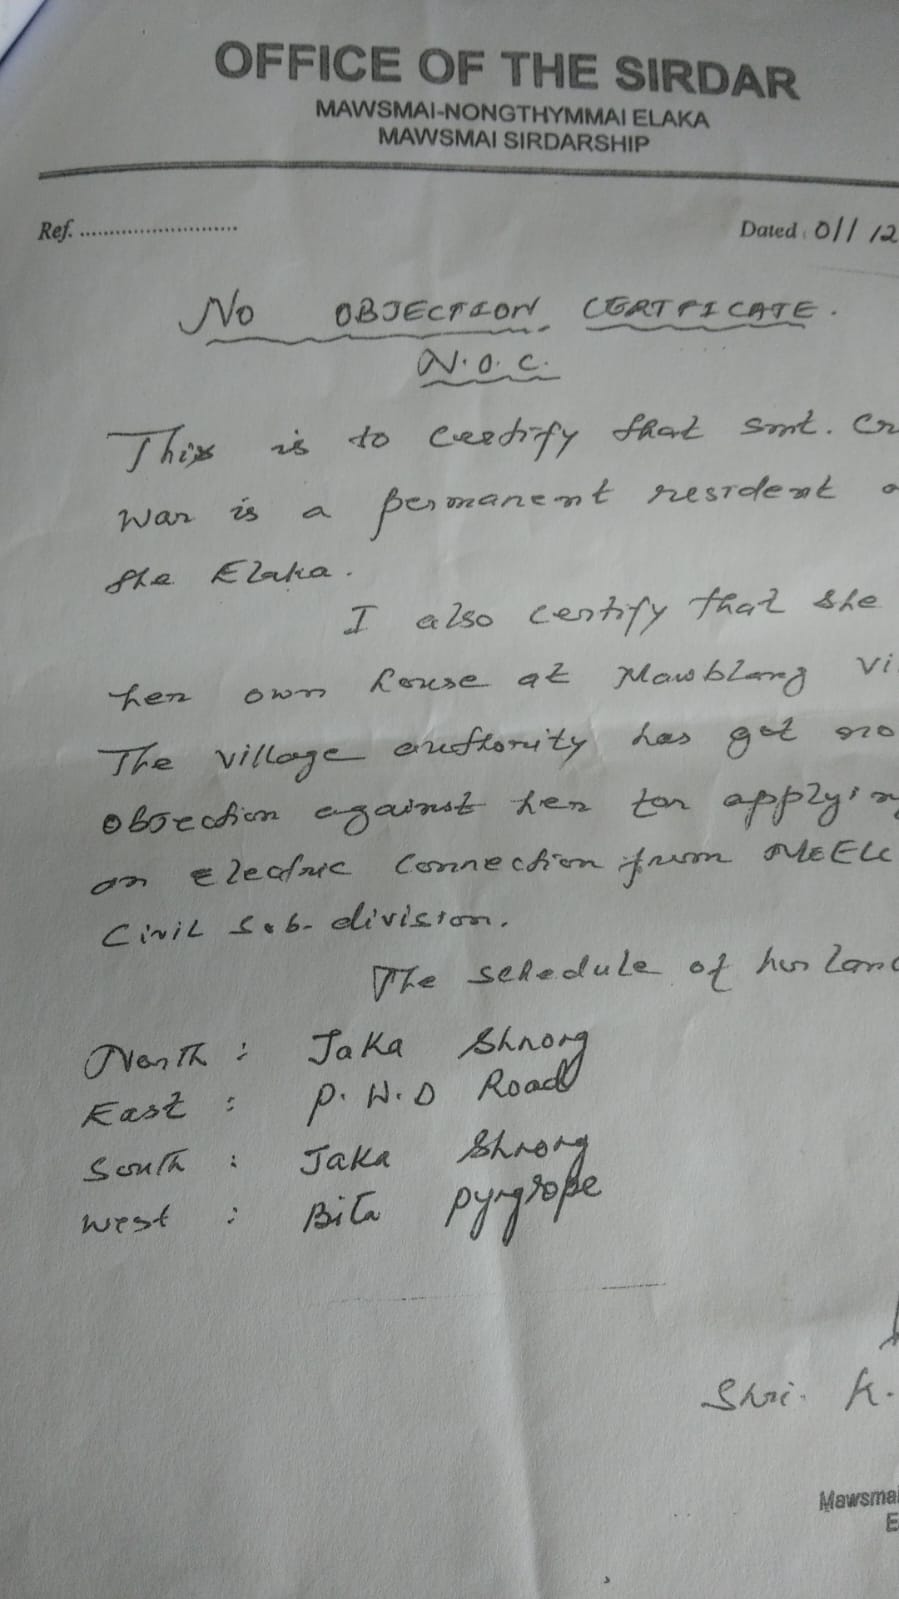 OFFICE OF THE SIRDAR
MAWSMAI-NONGTHYMMAI ELAKA
MAWSMAI SIRDARSHIP
Ref. ............................
Dated : 01/12
No OBJECTION CERTFICATE.
N.O.C.
This is to certify that smt. Cr
War is a permanent resident o
the Elaka.
I also certify that she
her own house at Mawblang Vi
The village authority has got no
Objection against her for applying
an electric connection from MeECL
Civil Sub-division.
The schedule of her land
North : Jaka Shnong
East : P.W.D Road
South : Jaka Shnong
West : Bita Pyrgrope
Shri. K.
Mawsmai
E